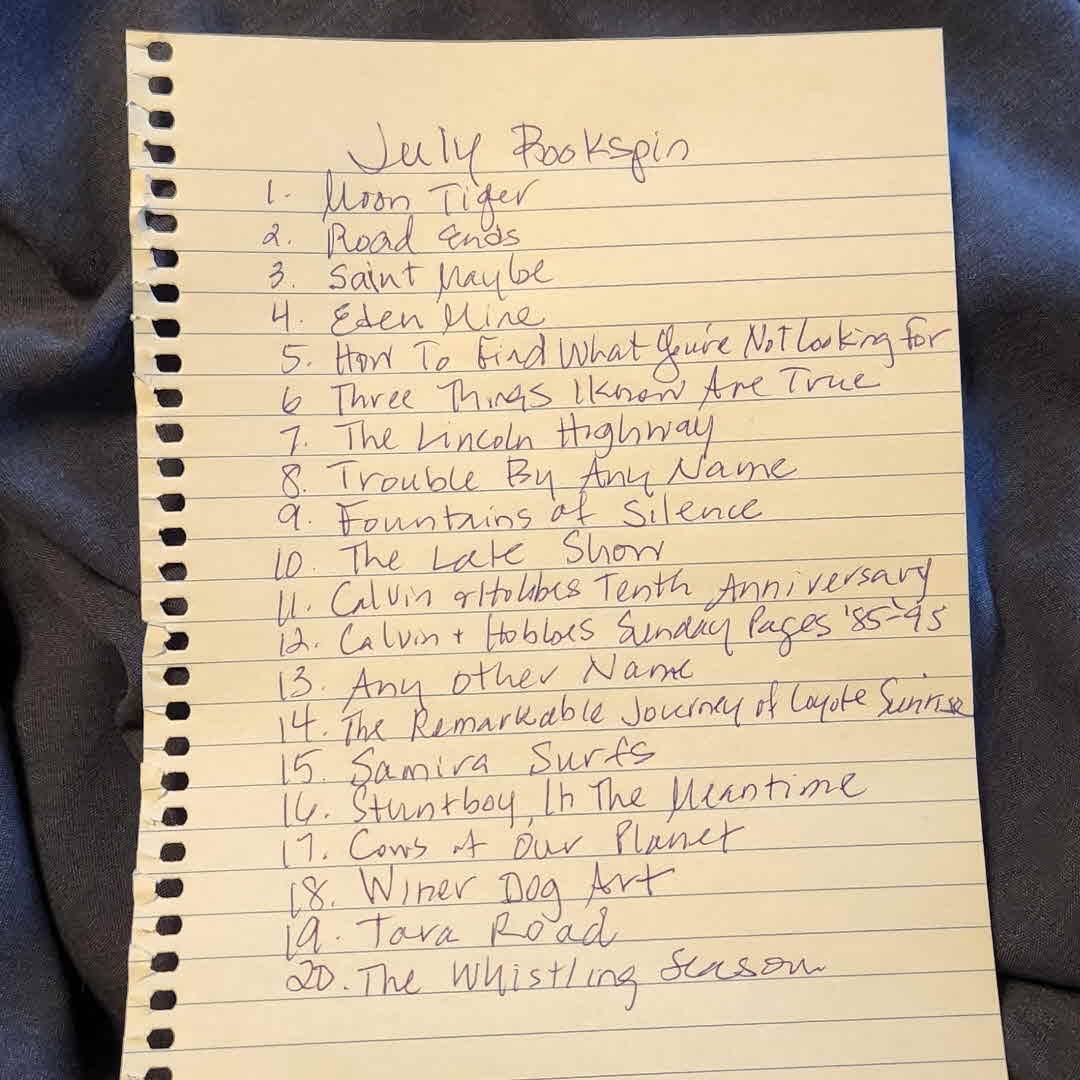 July Bookspin
1. Moon Tiger
2. Road Ends
3. Saint Maybe
4. Eden Mine
5. How To Find What You're Not Looking for
6 Three Things I Know Are True
7. The Lincoln Highway
8. Trouble By Any Name
9. Fountains of Silence
10. The Late Show
11. Calvin + Hobbes Tenth Anniversary
12. Calvin + Hobbes Sunday Pages '85-'95
13. Any Other Name
14. The Remarkable Journey of Coyote Sunrise
15. Samira Surfs
16. Stuntboy, In The Meantime
17. Cows of Our Planet
18. Winer Dog Art
19. Tara Road
20. The Whistling Season